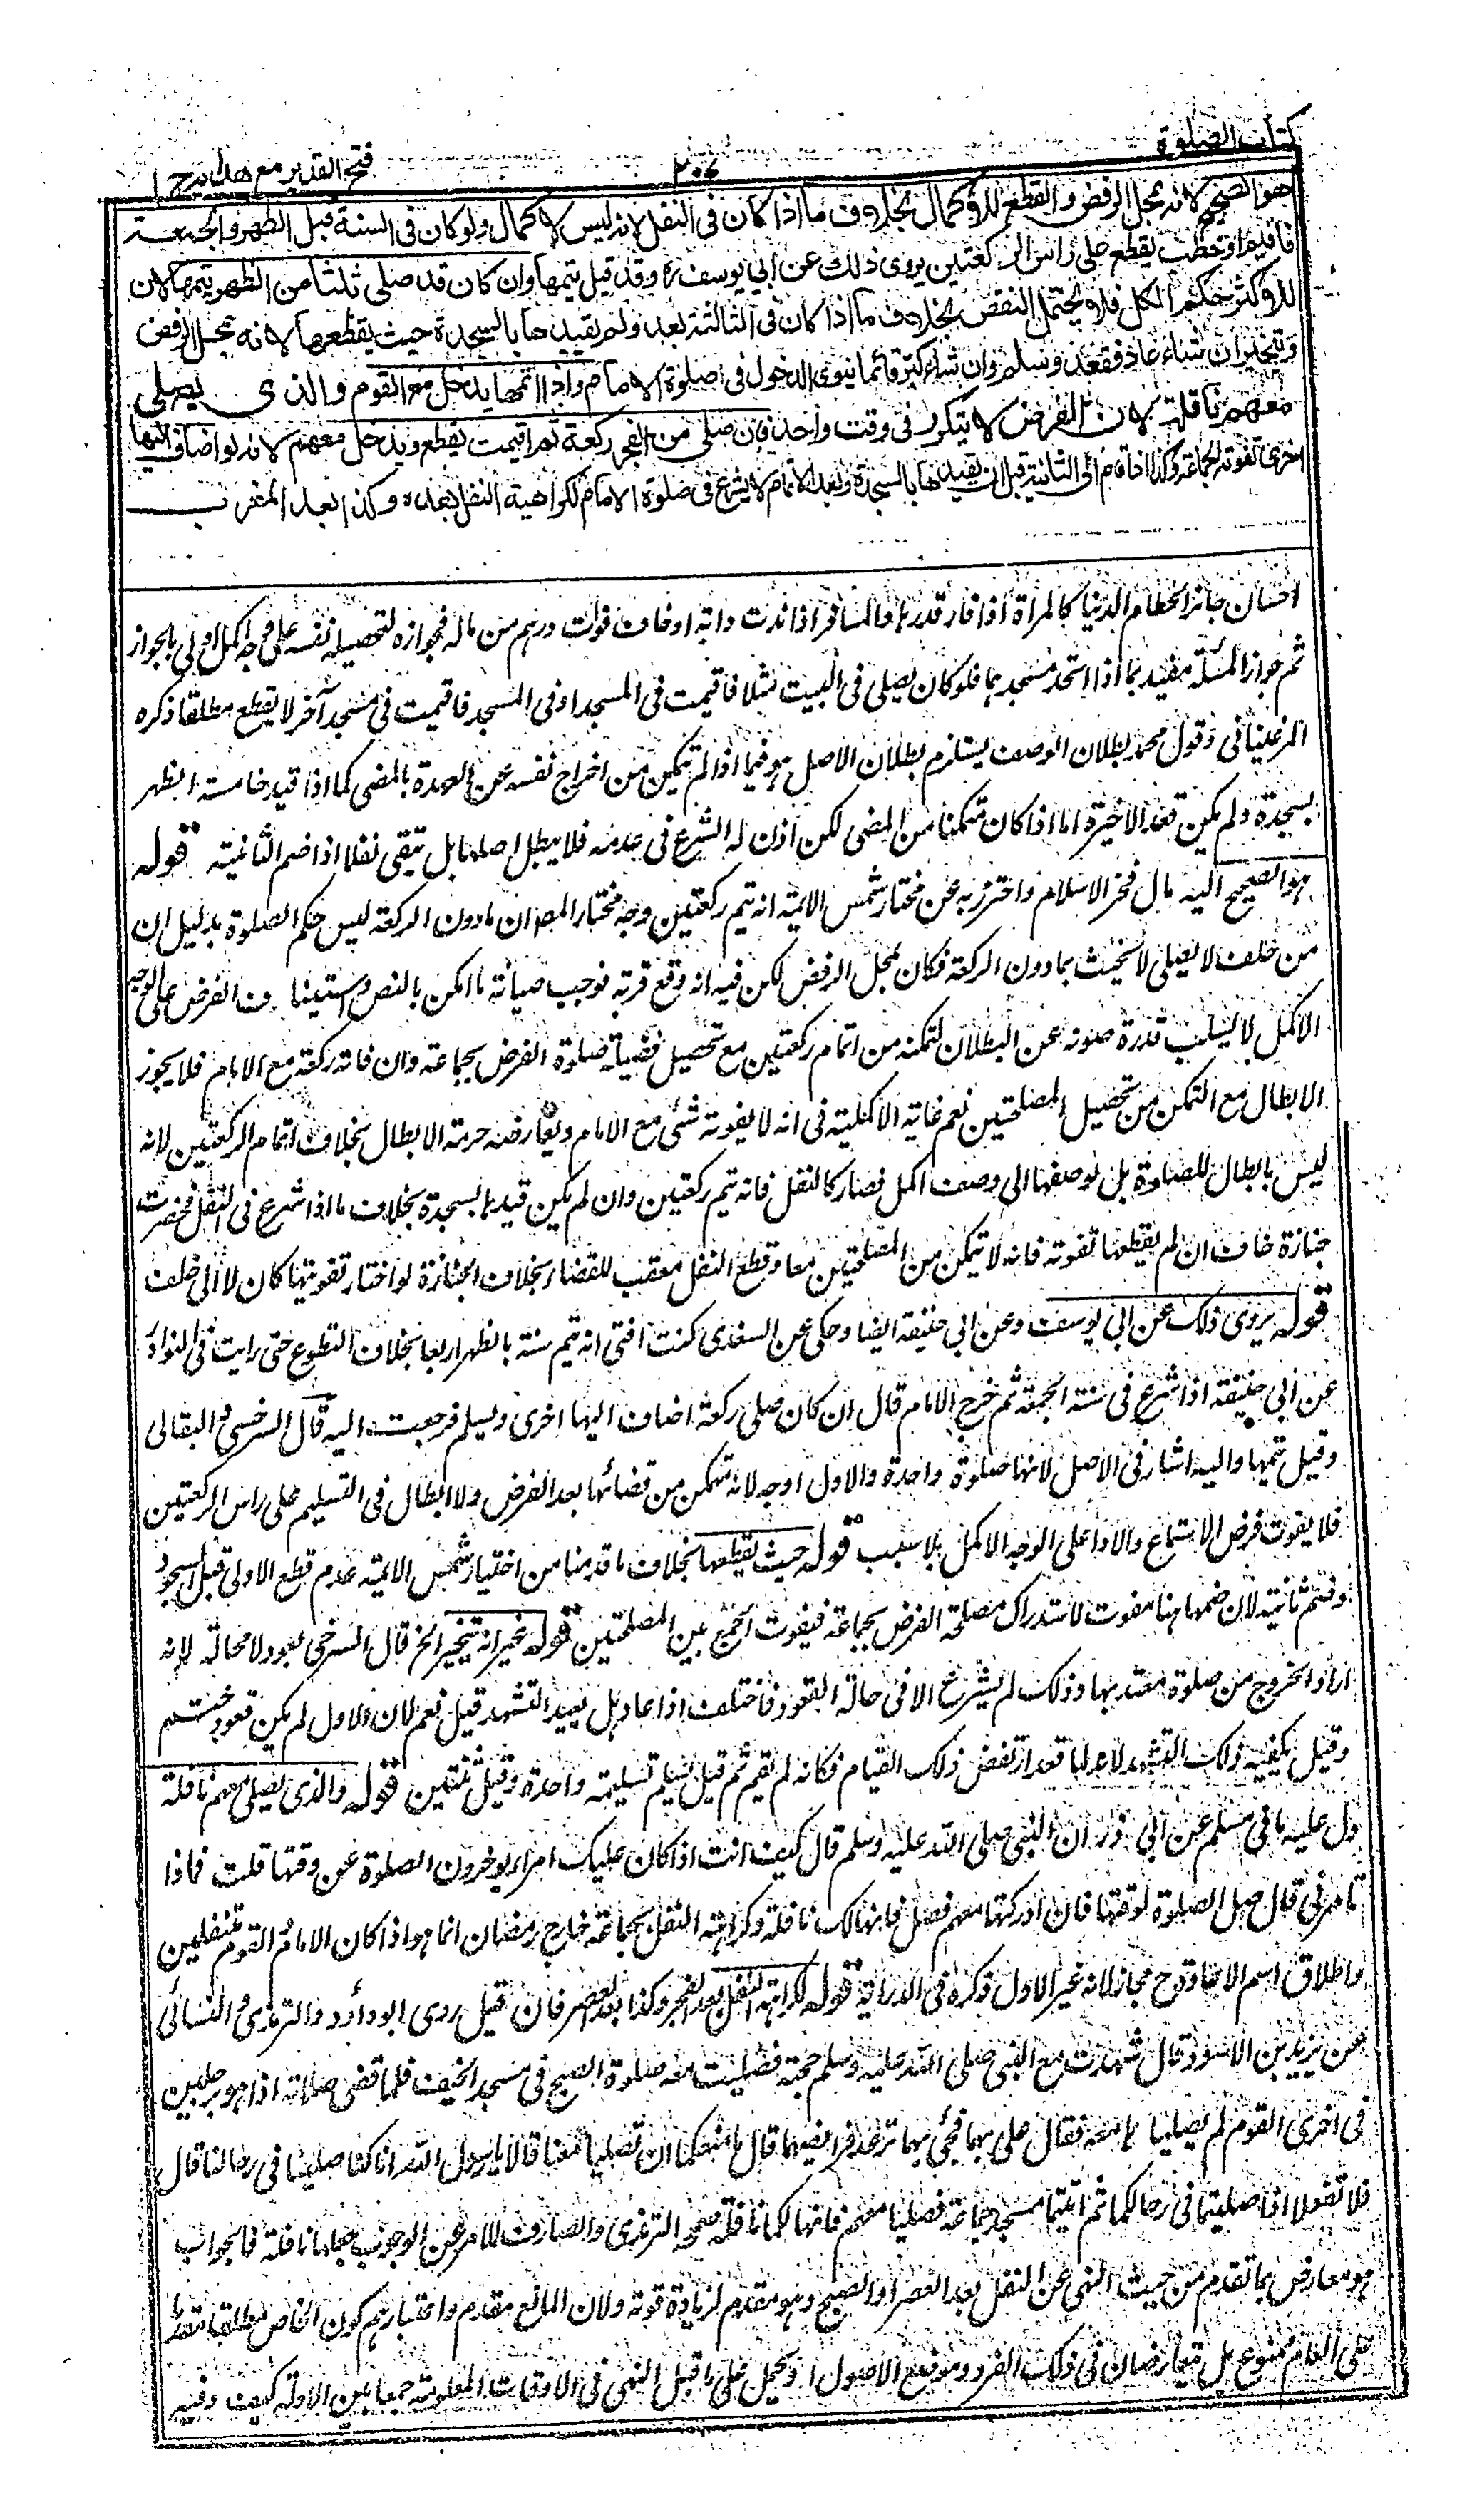 كتاب الصلوة
٢٠٤
فتح القدير مع هدايه ج ١
هو الصحيح لانه بمحل الرفض والقطع للاكمال بخلاف ما اذا كان في النفل لانه ليس للاكمال ولو كان في السنة قبل الظهر والجمعة
فاقيم او خطب يقطع على راس الركعتين يروى ذلك عن ابي يوسف ره وقد قيل يتمها وان كان قد صلى ثلثا من الظهر يتمها لان
للاكثر حكم الكل فلا يحتمل النقض بخلاف ما اذا كان في الثالثة بعد ولم يقيدها بالسجدة حيث يقطعها لانه بمحل الرفض
ويتخير ان شاء عاد فقعد وسلم وان شاء كبر قائما ينوى الدخول في صلوة الامام واذا اتمها يدخل مع القوم والذي يصلى
معهم نافلة لان الفرض لا يتكرر في وقت واحد فان صلى من الفجر ركعة ثم اقيمت يقطع ويدخل معهم لانه لو اضاف اليها
اخرى تفوته الجماعة وكذا اذا قام الى الثانية قبل ان يقيدها بالسجدة وبعد الاتمام لا يشرع في صلوة الامام لكراهية النفل بعده وكذا بعد المغرب
احسان جائز لحطام الدنيا كالمرأة اذا فار قدرها والمسافر اذا ندت دابته او خاف فوت درهم من ماله فجوازه لتحصيله نفسه على وجه اكمل اولى بالجواز
ثم جواز المسئلة مقيد بما اذا اتحد مسجدهما فلو كان يصلى في البيت مثلا فاقيمت في المسجد او في المسجد فاقيمت في مسجد آخر لا يقطع مطلقا ذكره
المرغيناني وقول محمد بطلان الوصف يستلزم بطلان الاصل هو فيما اذا لم يتمكن من اخراج نفسه عن العهدة بالمضى كما اذا قيد خامسة الظهر
بسجدة ولم يكن قعد الاخيرة اما اذا كان متمكنا من المضى لكن اذن له الشرع في عدمه فلا يبطل اصلها بل تبقى نفلا اذا ضم الثانية قوله
هو الصحيح اليه مال فخر الاسلام واحترز به عن مختار شمس الائمة انه يتم ركعتين وجه مختار المص ان ما دون الركعة ليس حكم الصلوة بدليل ان
من حلف لا يصلى لا يحنث بما دون الركعة فكان بمحل الرفض لكن فيه انه وقع قربة فوجب صيانته ما امكن بالنص واستيفاء الفرض على الوجه
الاكمل لا يسلب قدرة صونه عن البطلان لتمكنه من اتمام ركعتين مع تحصيل فضيلة صلوة الفرض بجماعة وان فاته ركعة مع الامام فلا يجوز
الابطال مع التمكن من تحصيل المصلحتين نعم غاية الاكملية في انه لا يفوته شئ مع الامام ويعارضه حرمة الابطال بخلاف اتمام الركعتين لانه
ليس بابطال للصلوة بل لوصفها الى وصف اكمل فصار كالنفل فانه يتم ركعتين وان لم يكن قيدها بسجدة بخلاف ما اذا شرع في النفل فحضرت
جنازة خاف ان لم يقطعها تفوته فانه لا يتمكن من المصلحتين معا وقطع النفل معقب للقضاء بخلاف الجنازة لو اختار تفويتها كان لا الى خلف
قوله يروى ذلك عن ابي يوسف وعن ابي حنيفة ايضا وحكى عن السغدى كنت افتى انه يتم سنة بالظهر اربعا بخلاف التطوع حتى رايت في النوادر
عن ابي حنيفة اذا شرع في سنة الجمعة ثم خرج الامام قال ان كان صلى ركعة اضاف اليها اخرى ويسلم فرجعت اليه قال السرخسى والبقالى
وقيل يتمها واليه اشار في الاصل لانها صلوة واحدة والاول اوجه لانه متمكن من قضائها بعد الفرض ولا ابطال في التسليم على راس الركعتين
فلا يفوت فرض الاستماع والاداء على الوجه الاكمل بلا سبب قوله حيث يقطعها بخلاف ما قدمنا من اختيار شمس الائمة عدم قطع الاولى قبل السجود
وضم ثانية لان ضمها هنا مفوت لاستدراك مصلحة الفرض بجماعة فيفوت الجمع بين المصلحتين قوله غير انه يتخير الخ قال السرخسى يعود لا محالة لانه
اراد الخروج من صلوة معتد بها وذلك لم يشرع الا في حالة القعود فاختلف اذا عاد هل يعيد التشهد قيل نعم لان الاول لم يكن قعود ختم
وقيل يكفيه ذلك التشهد لانه لما قعد ارتفض ذلك القيام فكانه لم يقم ثم قيل يسلم تسليمة واحدة وقيل ثنتين قوله والذي يصلى معهم نافلة
دل عليه ما في مسلم عن ابي ذر ان النبي صلى الله عليه وسلم قال كيف انت اذا كان عليك امراء يؤخرون الصلوة عن وقتها قلت فماذا
تامرني قال صل الصلوة لوقتها فان ادركتها معهم فصل فانها لك نافلة وكراهة النفل بجماعة خارج رمضان انما هو اذا كان الامام والقوم متنفلين
واطلاق اسم الاعادة ح مجاز لانه غير الاول ذكره في الدراية قوله لكراهة النفل بعد الفجر وكذا بعد العصر فان قيل روى ابو داود والترمذى والنسائى
عن يزيد بن الاسود قال شهدت مع النبي صلى الله عليه وسلم حجته فصليت معه صلوة الصبح في مسجد الخيف فلما قضى صلاته اذا هو برجلين
في اخرى القوم لم يصليا معه فقال على بهما فجئ بهما ترعد فرائصهما قال ما منعكما ان تصليا معنا قالا يا رسول الله انا كنا صلينا في رحالنا قال
فلا تفعلا اذا صليتما في رحالكما ثم اتيتما مسجد جماعة فصليا معهم فانها لكما نافلة صححه الترمذى والصارف للامر عن الوجوب جعلها نافلة فالجواب
هو معارض بما تقدم من حيث النهى عن النفل بعد العصر او الصبح وهو مقدم لزيادة قوته ولان المانع مقدم واعتبارهم كون الخاص مطلقا مقدما
على العام ممنوع بل يتعارضان في ذلك الفرد وموضع الاصول او يحمل على ما قبل النهى في الاوقات المعلومة جمعا بين الادلة كيف وفيه